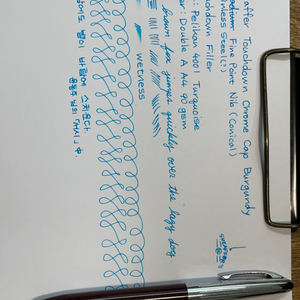 affer Touchdown Chrome Cap Burgundy
Fine Point Nib (Conical)
inless Steel(?)
chdown Filler
: Pelikan 4001 Turquoise
er : Double A A4 90 gsm
brown fox jumps quickly over the lazy dog
wetness
별이 바람에 스치운다
윤동주 님의 「서시」 中